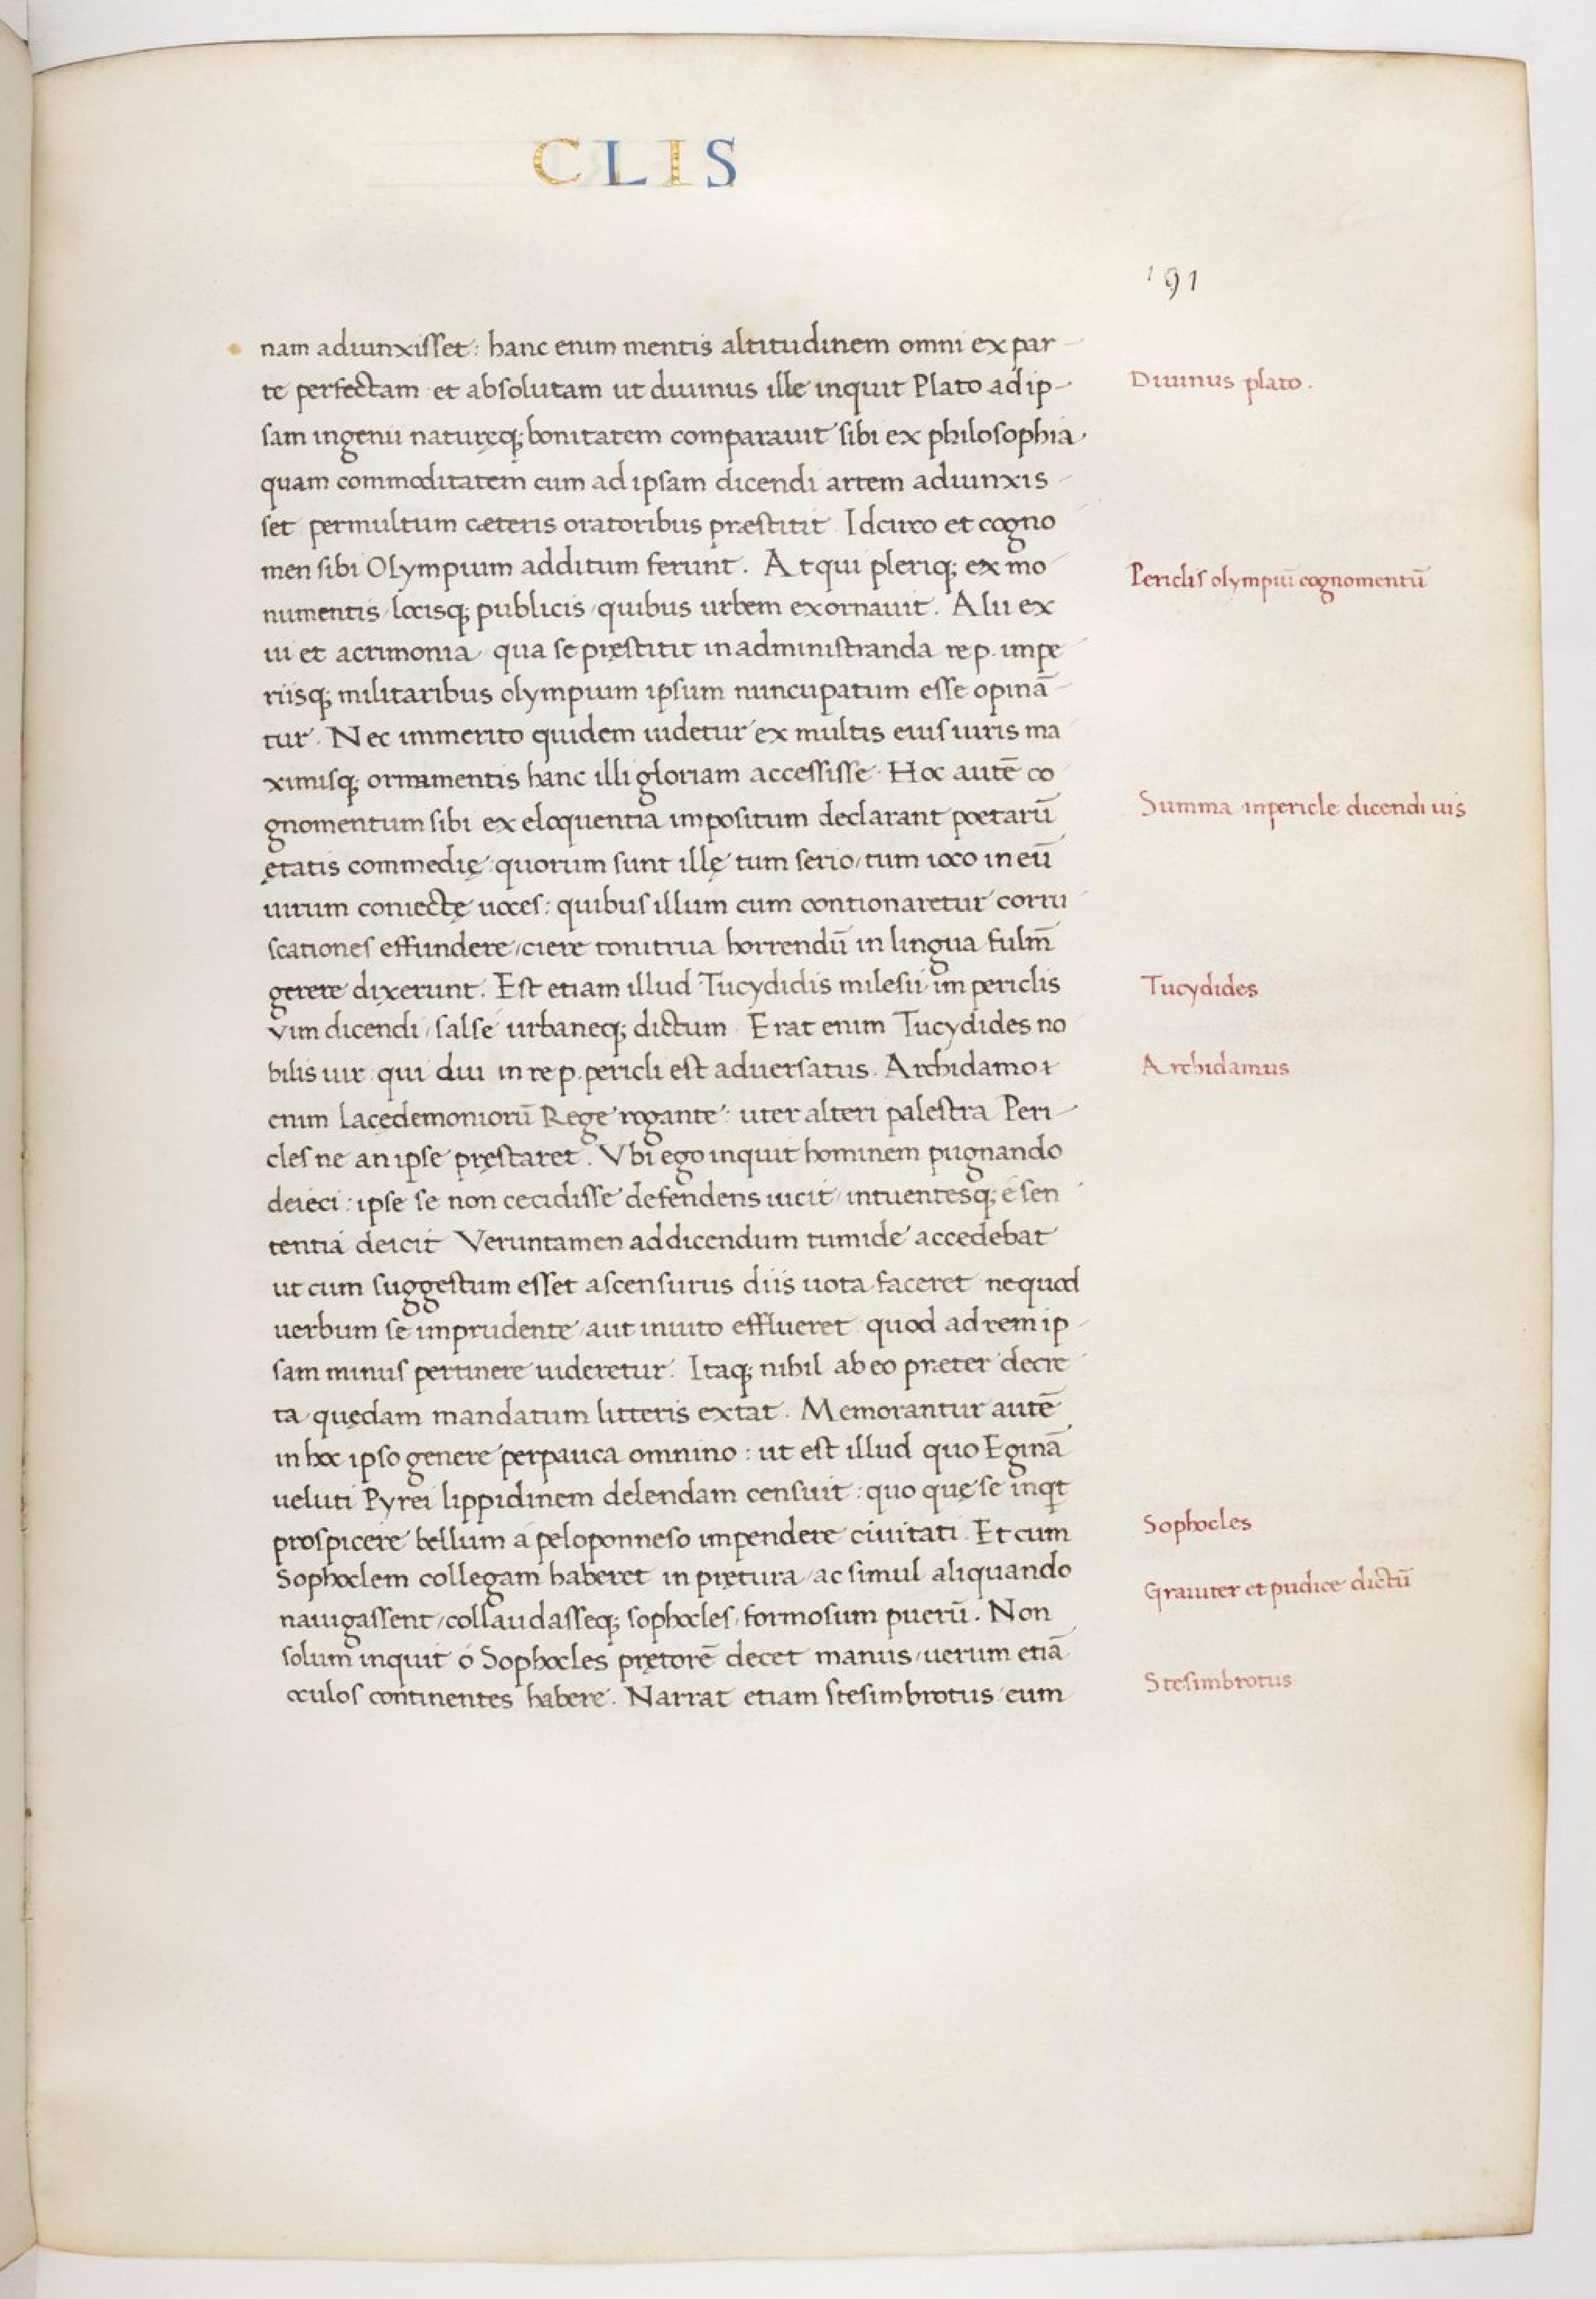 CLIS
191
nam adiunxisset: hanc enim mentis altitudinem omni ex par-
te perfectam et absolutam ut diuinus ille inquit Plato ad ip-
Diuinus plato.
sam ingenii naturęq; bonitatem comparauit sibi ex philosophia
quam commoditatem cum ad ipsam dicendi artem adiunxis-
set permultum cæteris oratoribus præstitit. Idcirco et cogno
men sibi Olympium additum ferunt. Atqui pleriq; ex mo
Periclis olympiū cognomentū
numentis locisq; publicis quibus urbem exornauit. Alii ex
ui et acrimonia qua se pręstitit in administranda rep. impe
riisq; militaribus olympium ipsum nuncupatum esse opinā-
tur. Nec immerito quidem uidetur ex multis eius uiris ma
ximisq; ornamentis hanc illi gloriam accessisse. Hoc autē co
Summa in pericle dicendi uis
gnomentum sibi ex eloquentia impositum declarant poetarū
ętatis commedię: quorum sunt illę tum serio/tum ioco in eū
uirum coniectę uoces: quibus illum cum contionaretur corru
scationes effundere/ciere tonitrua horrendū in lingua fulm̄
gerere dixerunt. Est etiam illud Tucydidis milesii im periclis
Tucydides
vim dicendi/salse urbaneq; dictum. Erat enim Tucydides no
bilis uir qui diu in rep. pericli est aduersatus. Archidamo
Archidamus
enim Lacędemoniorū Rege rogante: uter alteri palestra Peri-
cles ne an ipse pręstaret. Vbi ego inquit hominem pugnando
deieci: ipse se non cecidisse defendens uicit/intuentesq; e sen
tentia deicit Veruntamen ad dicendum tumide accedebat
ut cum suggestum esset ascensurus diis uota faceret ne quod
uerbum se imprudente/aut inuito efflueret quod ad rem ip
sam minus pertinere uideretur. Itaq; nihil ab eo præter decre
ta quędam mandatum litteris extat. Memorantur autē
in hoc ipso genere perpauca omnino: ut est illud quo Eginā
ueluti Pyrei lippidinem delendam censuit: quo quę se inqt
prospicere bellum a peloponneso impendere ciuitati. Et cum
Sophocles
Sophoclem collegam haberet in pretura/ac simul aliquando
Grauiter et pudice dictū
nauigassent/collaudasseq; sophocles/formosum puerū. Non
solum inquit o Sophocles prętorē decet manus/uerum etiā
oculos continentes habere. Narrat etiam stesimbrotus eum
Stesimbrotus